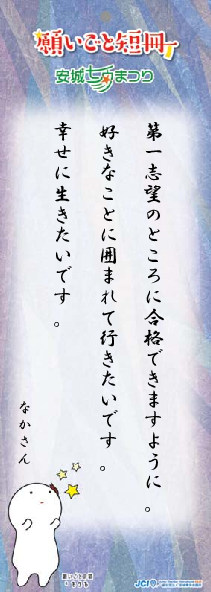 願いごと短冊
安城七夕まつり
第一志望のところに合格できますように。
好きなことに囲まれて行きたいです。
幸せに生きたいです。
なかさん
願いごと短冊
JCI